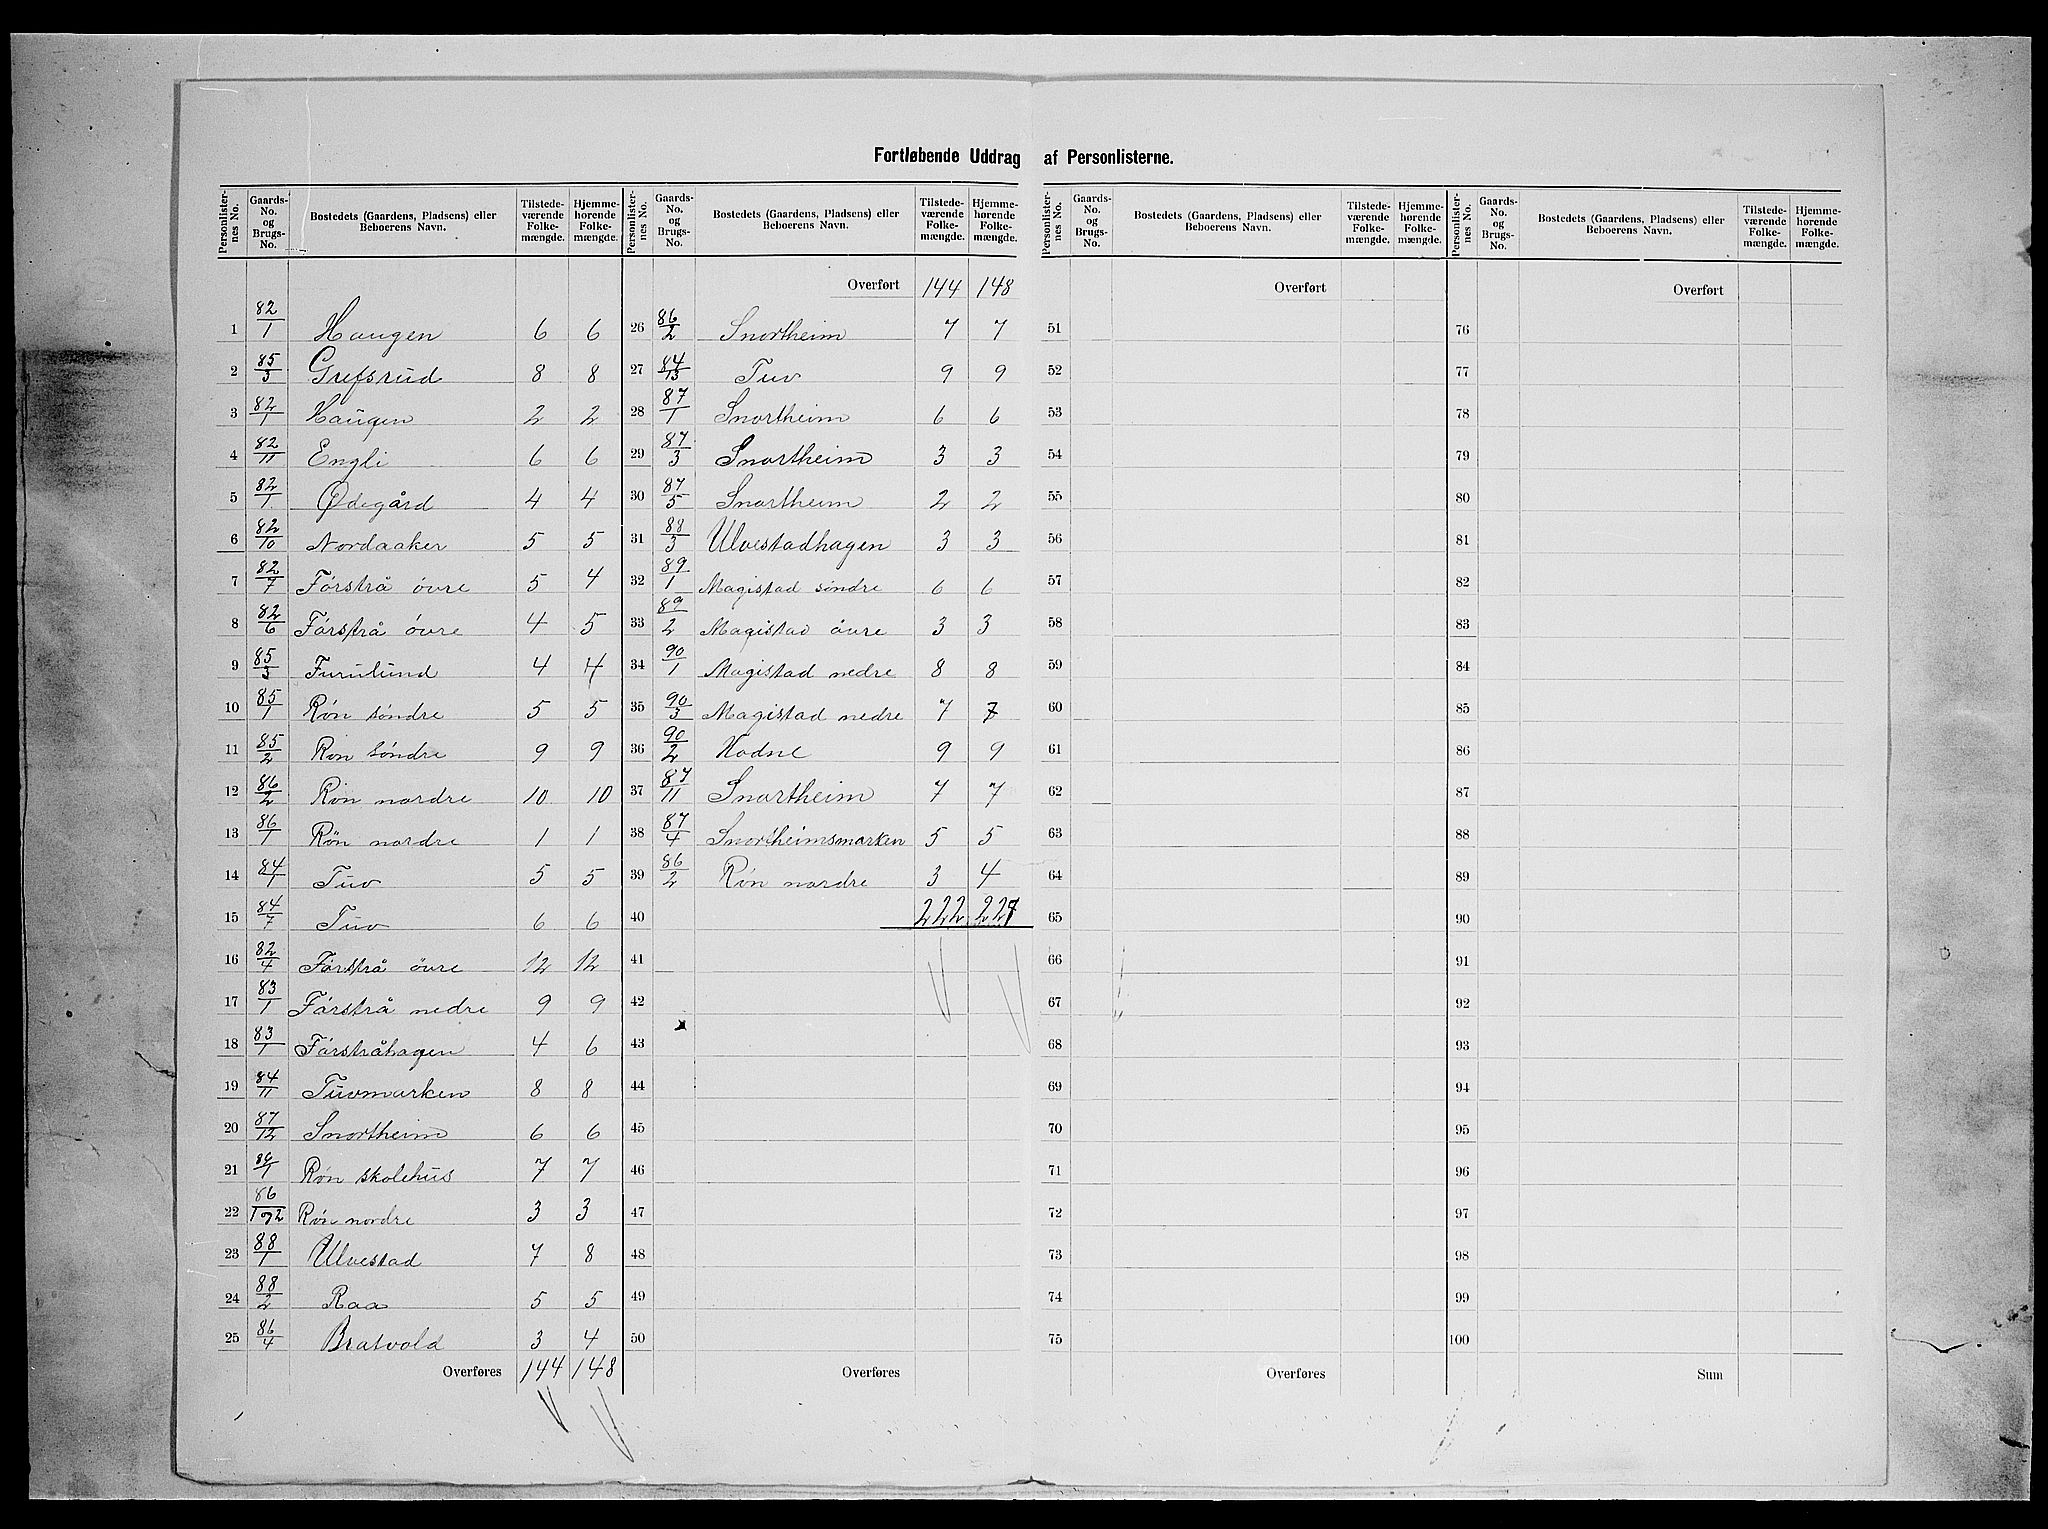 Fortløbende Uddrag af Personlisterne.
Personlister-nes No. Gaards-No. og Brugs-No. Bostedets (Gaardens, Pladsens) eller Beboerens Navn. Tilstede-værende Folke-mængde. Hjemme-hørende Folke-mængde.
1 82/1 Haugen 6 6
2 85/3 Grefsrud 8 8
3 82/1 Haugen 2 2
4 82/11 Engli 6 6
5 82/1 Ødegård 4 4
6 82/10 Nordaaker 5 5
7 82/7 Førstrå övre 5 4
8 82/6 Førstrå övre 4 5
9 85/3 Furulund 4 4
10 85/1 Røn søndre 5 5
11 85/2 Røn søndre 9 9
12 86/2 Røn nordre 10 10
13 86/1 Røn nordre 1 1
14 84/1 Tuv 5 5
15 84/7 Tuv 6 6
16 82/4 Førstrå övre 12 12
17 83/1 Førstrå nedre 9 9
18 83/1 Førstråhagen 4 6
19 84/11 Tuvmarken 8 8
20 87/12 Snortheim 6 6
21 86/1 Røn skolehus 7 7
22 86/1 og 2 Røn nordre 3 3
23 88/1 Ulvestad 7 8
24 88/2 Raa 5 5
25 86/4 Bratvold 3 4
Overføres 144 148
Personlister-nes No. Gaards-No. og Brugs-No. Bostedets (Gaardens, Pladsens) eller Beboerens Navn. Tilstede-værende Folke-mængde. Hjemme-hørende Folke-mængde.
Overført 144 148
26 86/2 Snortheim 7 7
27 84/13 Tuv 9 9
28 87/1 Snortheim 6 6
29 87/3 Snortheim 3 3
30 87/5 Snortheim 2 2
31 88/3 Ulvestadhagen 3 3
32 89/1 Magistad søndre 6 6
33 89/2 Magistad övre 3 3
34 90/1 Magistad nedre 8 8
35 90/3 Magistad nedre 7 7
36 90/2 Hodne 9 9
37 87/11 Snortheim 7 7
38 87/4 Snortheimsmarken 5 5
39 86/2 Røn nordre 3 4
40 222 227
41
42
43
44
45
46
47
48
49
50
Overføres
Personlister-nes No. Gaards-No. og Brugs-No. Bostedets (Gaardens, Pladsens) eller Beboerens Navn. Tilstede-værende Folke-mængde. Hjemme-hørende Folke-mængde.
Overført
51
52
53
54
55
56
57
58
59
60
61
62
63
64
65
66
67
68
69
70
71
72
73
74
75
Overføres
Personlister-nes No. Gaards-No. og Brugs-No. Bostedets (Gaardens, Pladsens) eller Beboerens Navn. Tilstede-værende Folke-mængde. Hjemme-hørende Folke-mængde.
Overført
76
77
78
79
80
81
82
83
84
85
86
87
88
89
90
91
92
93
94
95
96
97
98
99
100
Sum